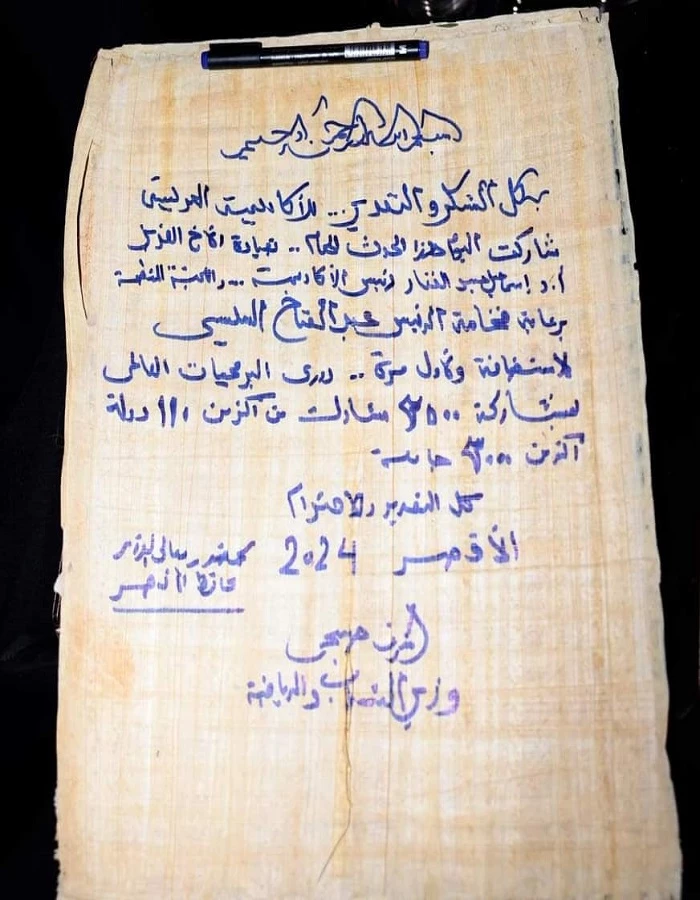 بسم الله الرحمن الرحيم
بكل الشكر والتقدير .. للأكاديمية العربية
شاركت اليوم هذا الحدث الهام .. بقيادة الأخ العزيز
أ.د إسماعيل عبد الغفار رئيس الأكاديمية ... واللجنة المنظمة
برعاية فخامة الرئيس عبد الفتاح السيسي
لاستضافة ولأول مرة .. دورى البرمجيات العالمى
بمشاركة ٣٥٠٠ مشارك من أكثر من ١١١ دولة
أكثر من ٣٠٠٠ جامعة
كل التقدير والاحترام
الأقصر 2024
بحضور معالى الوزير
محافظ الأقصر
أشرف صبحى
وزير الشباب والرياضة